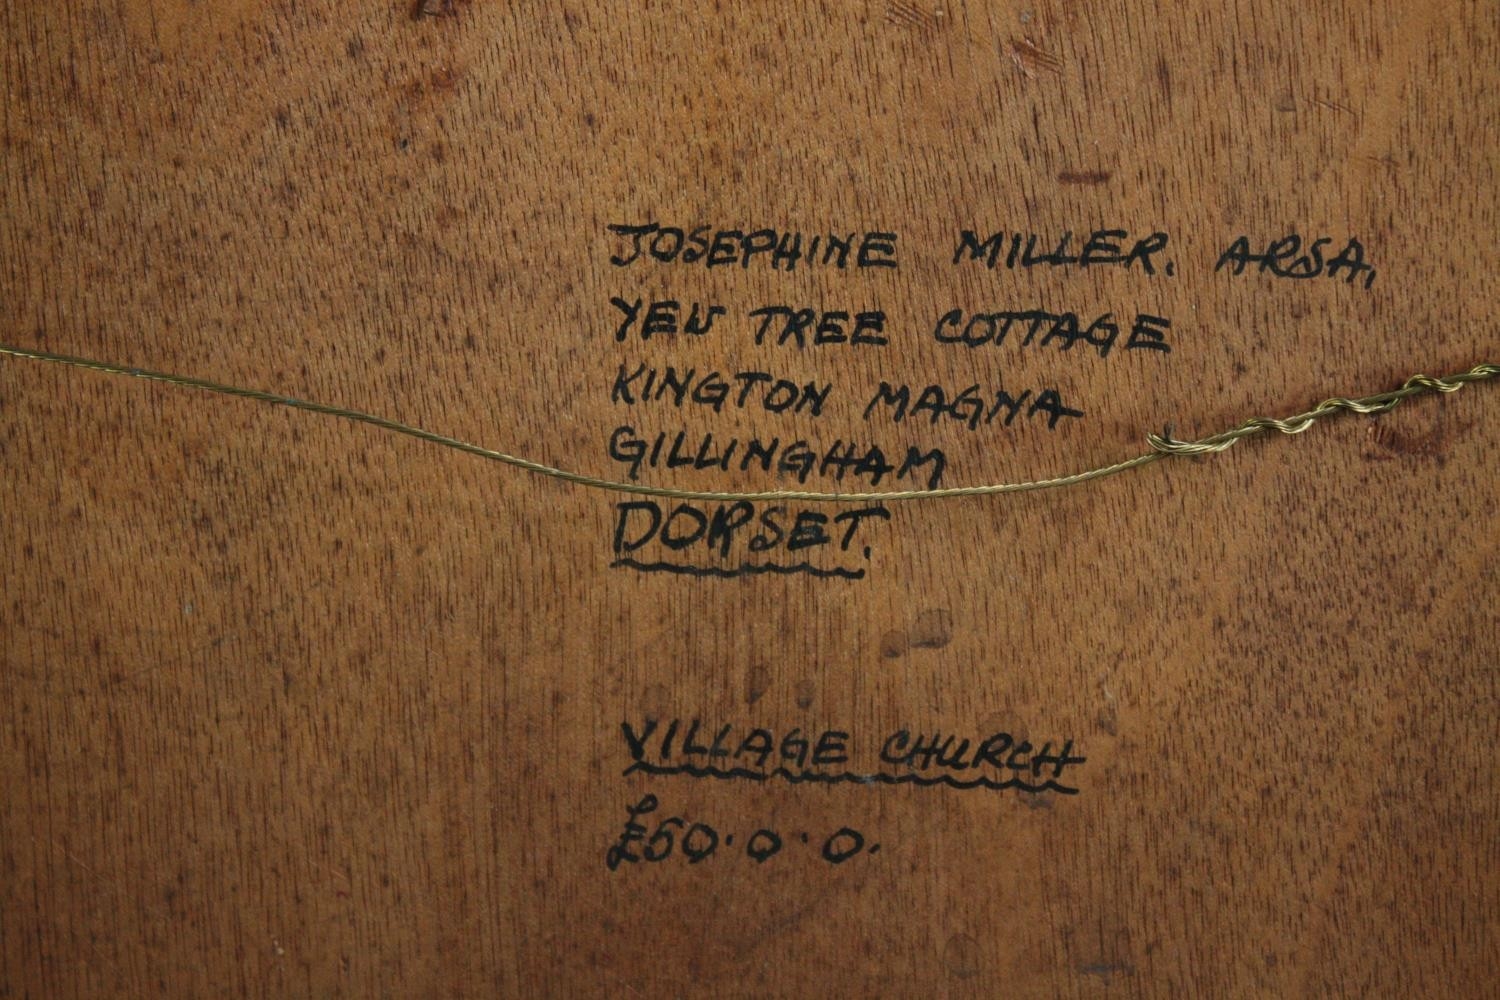 JOSEPHINE MILLER. ARSA,
YEW TREE COTTAGE
KINGTON MAGNA
GILLINGHAM
DORSET.
VILLAGE CHURCH
£50·0·0.